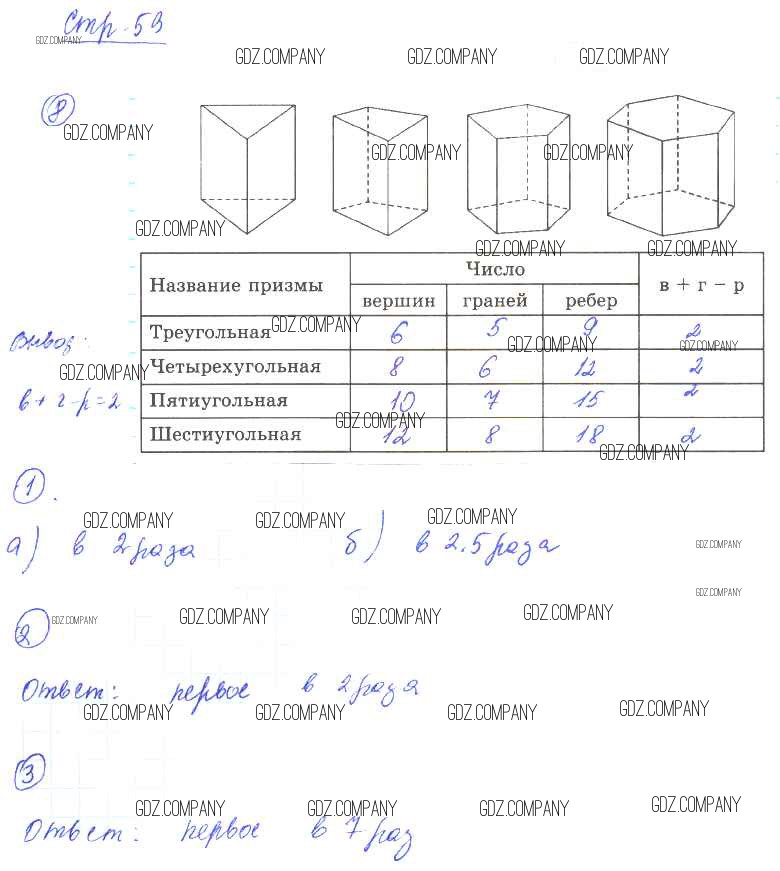 Стр. 59
GDZ.COMPANY
GDZ.COMPANY GDZ.COMPANY GDZ.COMPANY
8
GDZ.COMPANY
GDZ.COMPANY GDZ.COMPANY
GDZ.COMPANY
GDZ.COMPANY GDZ.COMPANY
Название призмы Число в + г − р
вершин граней ребер
Треугольная 6 5 9 2
GDZ.COMPANY
Вывод:
GDZ.COMPANY GDZ.COMPANY
Четырехугольная 8 6 12 2
GDZ.COMPANY
в + г - р = 2
Пятиугольная 10 7 15 2
GDZ.COMPANY
Шестиугольная 12 8 18 2
GDZ.COMPANY
1.
GDZ.COMPANY GDZ.COMPANY GDZ.COMPANY
а) в 2 раза б) в 2.5 раза
GDZ.COMPANY
GDZ.COMPANY
2
GDZ.COMPANY GDZ.COMPANY GDZ.COMPANY GDZ.COMPANY
Ответ: первое в 2 раза
GDZ.COMPANY GDZ.COMPANY GDZ.COMPANY GDZ.COMPANY
3
GDZ.COMPANY GDZ.COMPANY GDZ.COMPANY GDZ.COMPANY
Ответ: первое в 7 раз